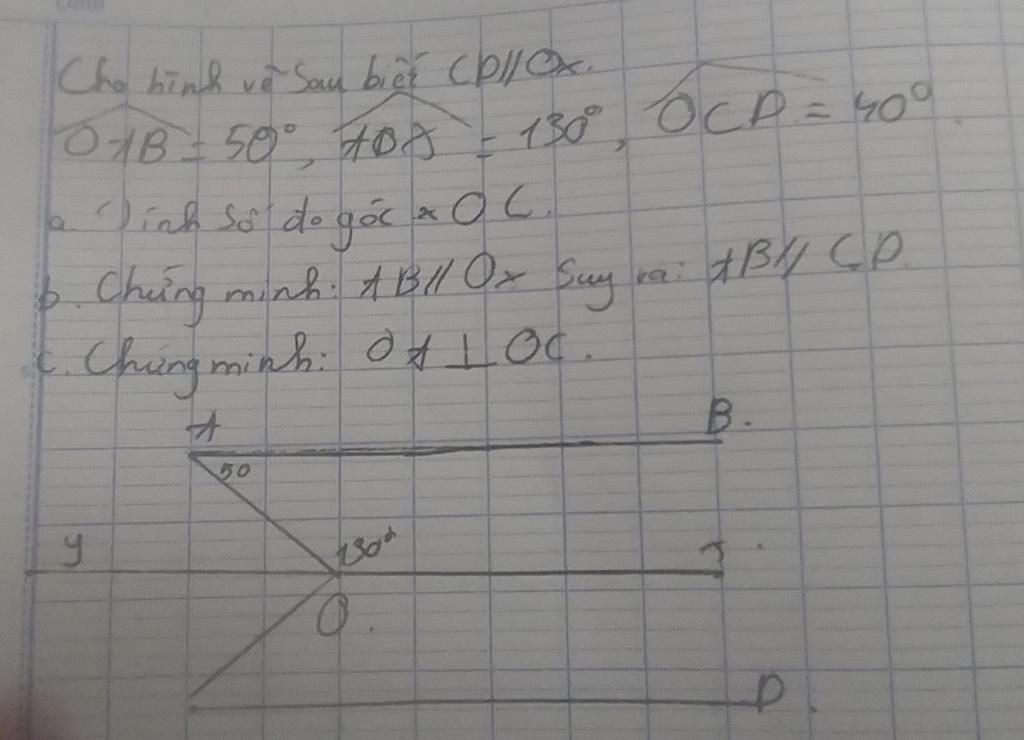 Cho hình vẽ sau biết CD//Ox.
OAB = 50°, AOx = 130°, OCD = 40°.
a. Tính số đo góc xOC.
b. Chứng minh: AB//Ox suy ra: AB//CD.
c. Chứng minh: OA ⊥ OC.
A B.
50
y 130° x.
O.
D.